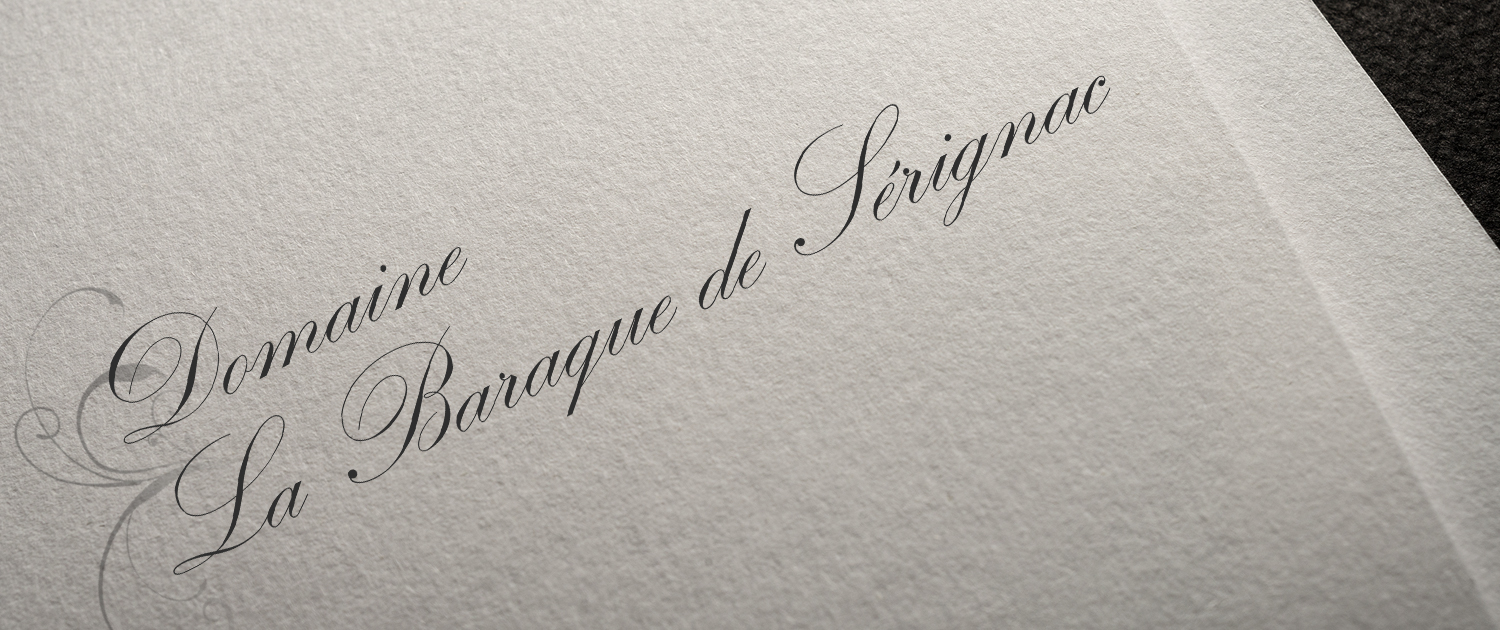 Domaine
La Baraque de Sérignac